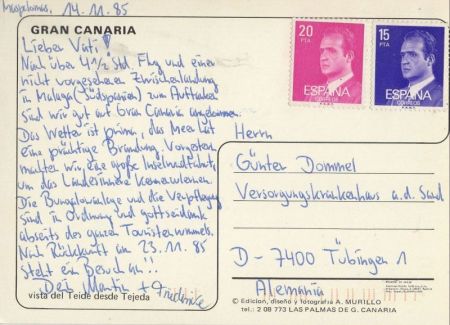 Maspalomas, 14.11.85
GRAN CANARIA
Lieber Vati!
Nach über 4 1/2 Std. Flug und einer
nicht vorgesehenen Zwischenlandung
in Malaga (Südspanien) zum Auftanken
sind wir gut auf Gran Canaria angekommen.
Das Wetter ist prima, das Meer hat
eine prächtige Brandung. Vorgestern
machten wir eine große Inselrundfahrt,
um das Landesinnere kennenzulernen.
Die Bungalowanlage und die Verpflegung
sind in Ordnung und gottseidank
abseits des ganzen Touristenrummels.
Nach Rückkunft am 23.11.85
steht ein Besuch an!!
Dein Martin +
vista del Teide desde Tejeda
20
PTA
ESPAÑA
CORREOS
15
PTA
ESPAÑA
CORREOS
Herrn
Günter Dommel
Versorgungskrankenhaus a.d. Sand
D-7400 Tübingen 1
Alemania
© Edicion, diseño y fotografia A. MURILLO
tel.: 2 08 773 LAS PALMAS DE G. CANARIA